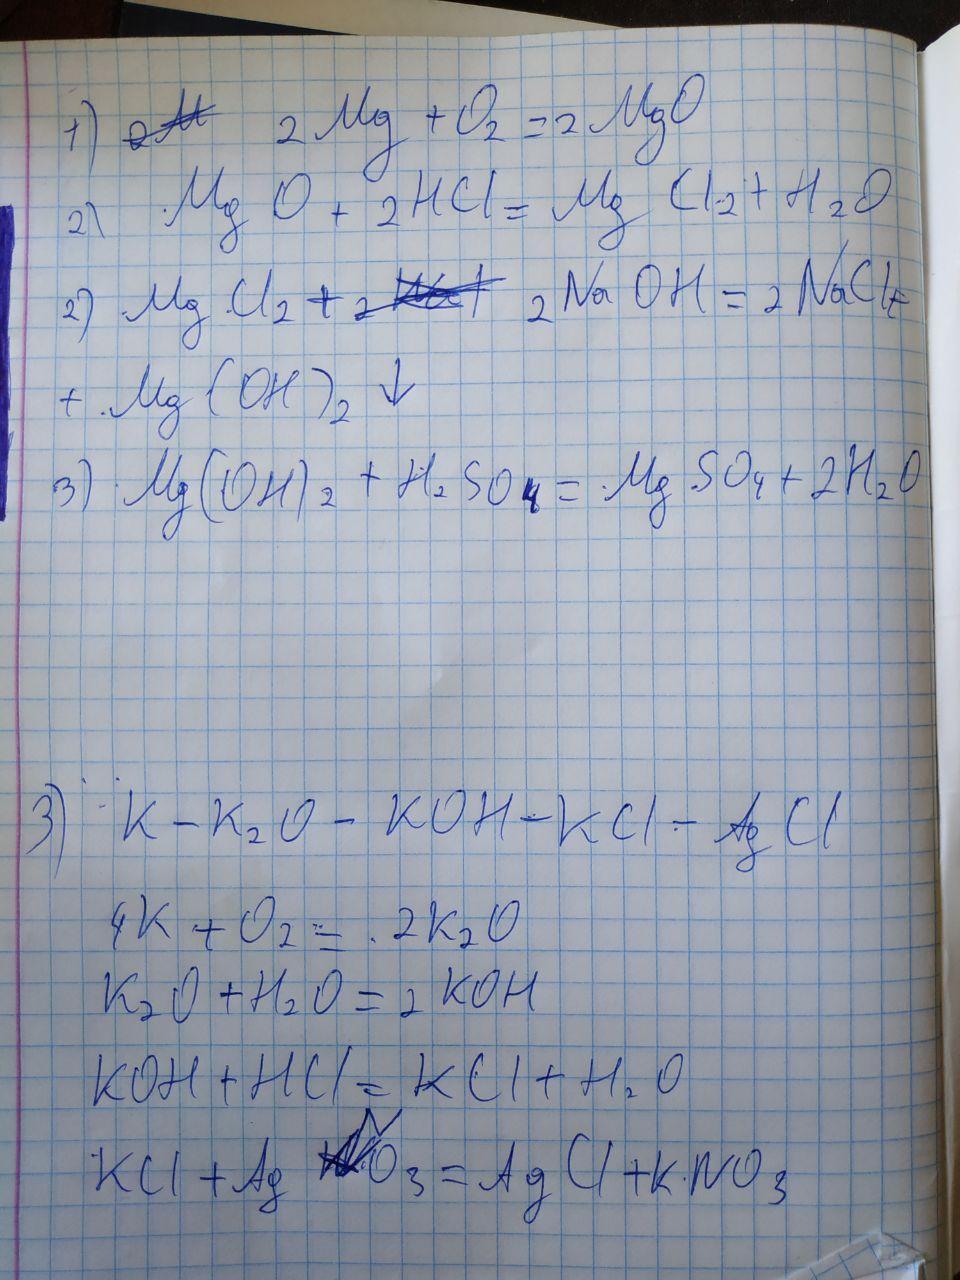 1) 2Mg + O₂ = 2MgO
2) MgO + 2HCl = MgCl₂ + H₂O
2) MgCl₂ + 2NaOH = 2NaCl +
+ Mg(OH)₂ ↓
3) Mg(OH)₂ + H₂SO₄ = MgSO₄ + 2H₂O
3) K – K₂O – KOH – KCl – AgCl
4K + O₂ = 2K₂O
K₂O + H₂O = 2KOH
KOH + HCl = KCl + H₂O
KCl + AgNO₃ = AgCl + KNO₃